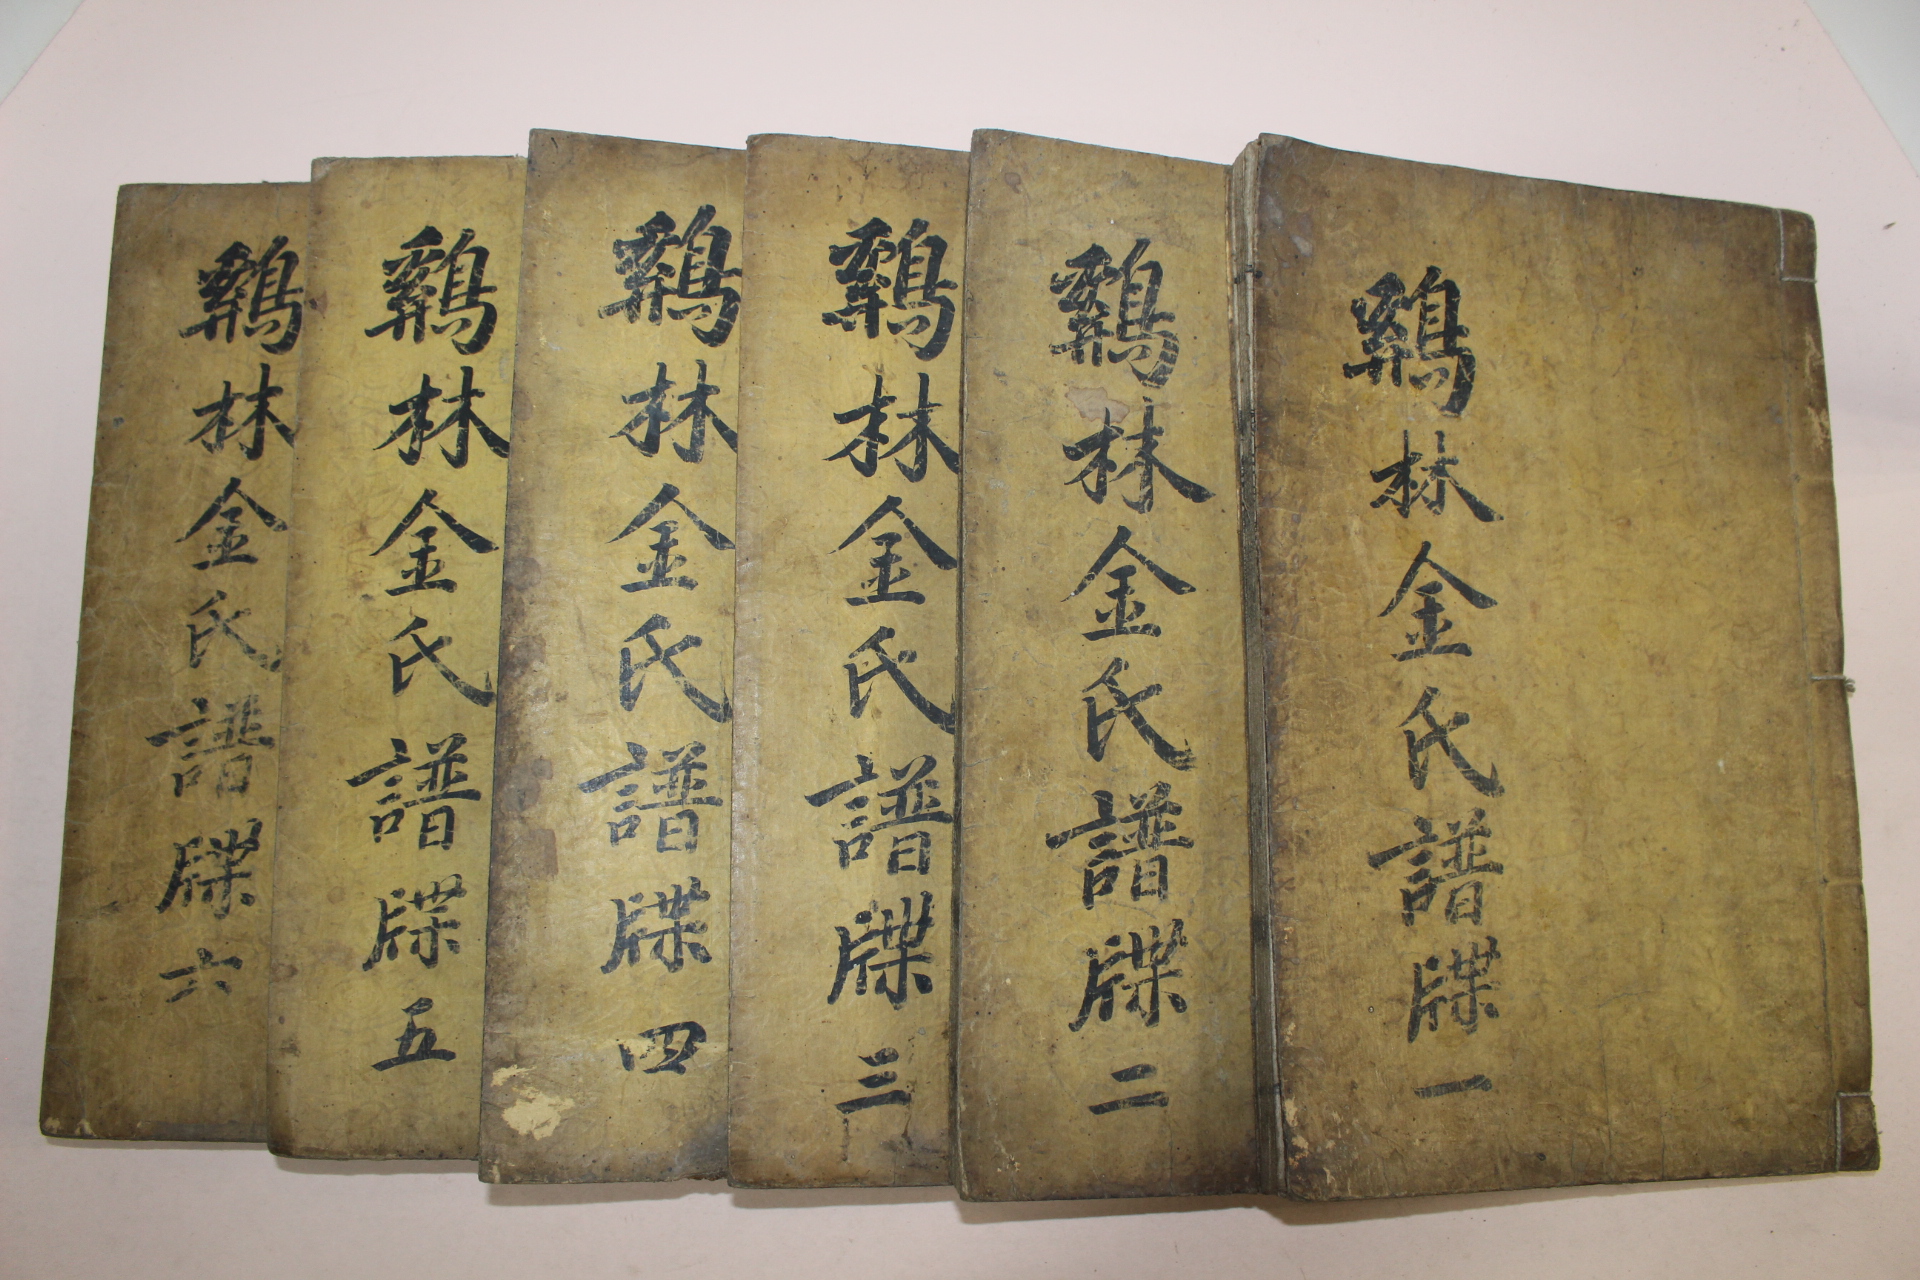 鷄林金氏譜牒 一
鷄林金氏譜牒 二
鷄林金氏譜牒 三
鷄林金氏譜牒 四
鷄林金氏譜牒 五
鷄林金氏譜牒 六